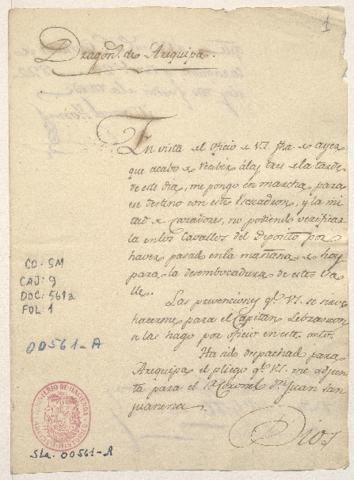 1
Dragon.s de Arequipa.
En vista el oficio de V.S. fha de ayer
que acabo de recibir á las tres de la tarde
de este dia, me pongo en marcha para
su destino con este Escuadron, y la mi
tad de cazadores, no pudiendo verificar
la en los Cavallos del Deposito por
haver pasado en la mañana de hoy
para la desembocadura de este Va
lle.
Las prevenciones q.e V.S. se sirve
hacerme para el Capitan
a las hago por oficio en este
Ha sido despachado para
Arequipa el pliego q.e V.S. me adjun
ta para el S. Coronel D.n Juan San
juanena.
Dios
CO: SM
CAJ: 9
DOC: 561a
FOL: 1
00561-A
Sla. 00561-A